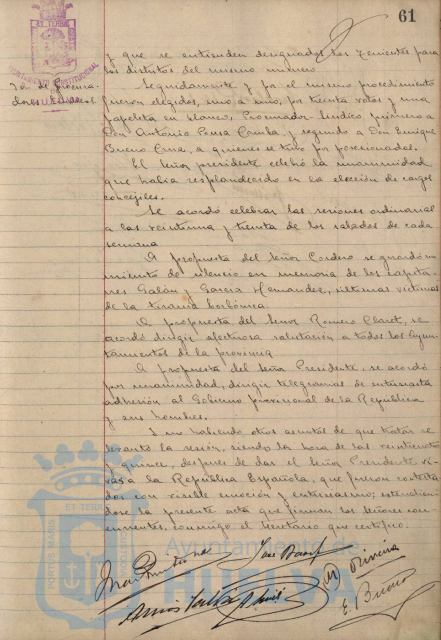 61
y que se entienden designados los Tenientes para
los distritos del mismo número.
Seguidamente y por el mismo procedimiento
fueron elegidos, uno a uno, por treinta votos y una
papeleta en blanco, Procurador Síndico primero a
Don Antonio Ponsa y segundo a Don Enrique
Bueno Cruz, a quienes se tuvo por posesionados.
El Señor presidente celebró la unanimidad
que había resplandecido en la elección de cargos
concejiles.
Se acordó celebrar las sesiones ordinarias
a las veintiuna y treinta de los sábados de cada
semana
A propuesta del Señor Cordero se guardó un
minuto de silencio en memoria de los capita-
nes Galán y García Hernández, últimas víctimas
de la tiranía borbónica
A propuesta del Señor Romero Claret, se
acordó dirigir afectuosa salutación a todos los Ayun-
tamientos de la provincia
A propuesta del Señor Presidente, se acordó
por unanimidad, dirigir telegramas de entusiasta
adhesión al Gobierno provisional de la República
y sus hombres.
Y no habiendo otros asuntos de que tratar se
levantó la sesión, siendo la hora de las veinticuatro
y quince, después de dar el Señor Presidente vi-
vas a la República Española, que fueron contesta-
dos con visible emoción y entusiasmo; extendién-
dose la presente acta que firman los Señores con-
currentes, conmigo el Secretario que certifico.
E. Bueno
ET TERRÆ
PORTUS MARIS
Ayuntamiento de
HUELVA